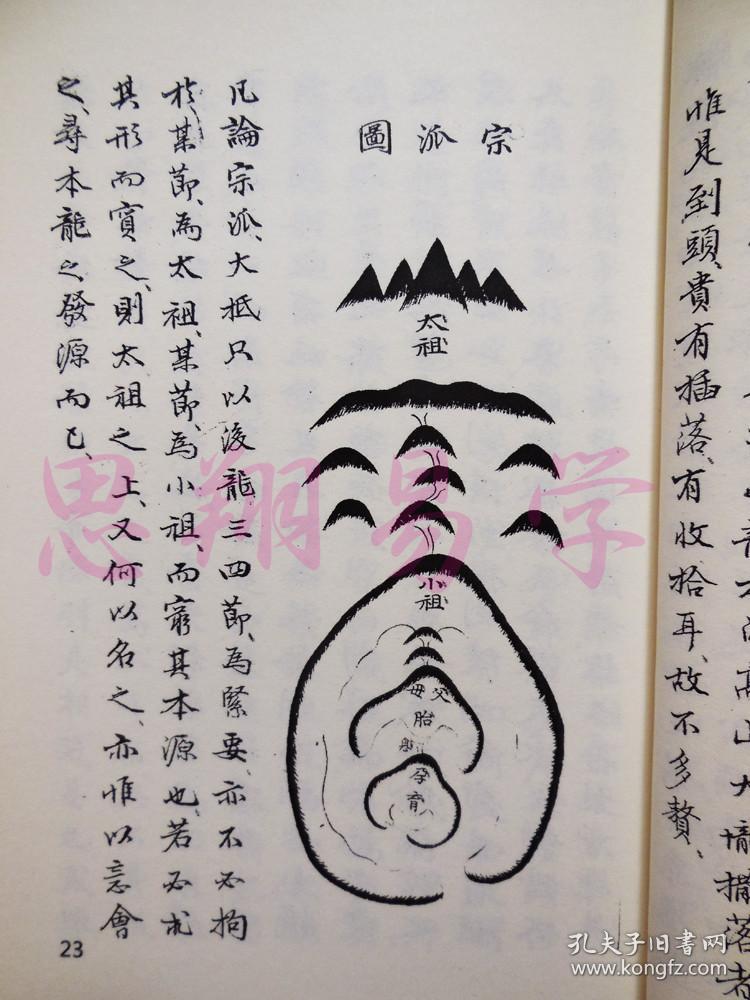 惟是到頭、貴有插落、有收拾耳、故不多贅、
宗派圖
太祖
小祖
父母
胎
息
孕
育
凡論宗派、大抵只以後龍三四節、為緊要、亦不必拘
於某節、為太祖、某節、為小祖、而窮其本源也、若必求
其形而實之、則太祖之上、又何以名之、亦惟以意會
之、尋本龍之發源而已、
23
思翔易学
孔夫子旧书网
www.kongfz.com